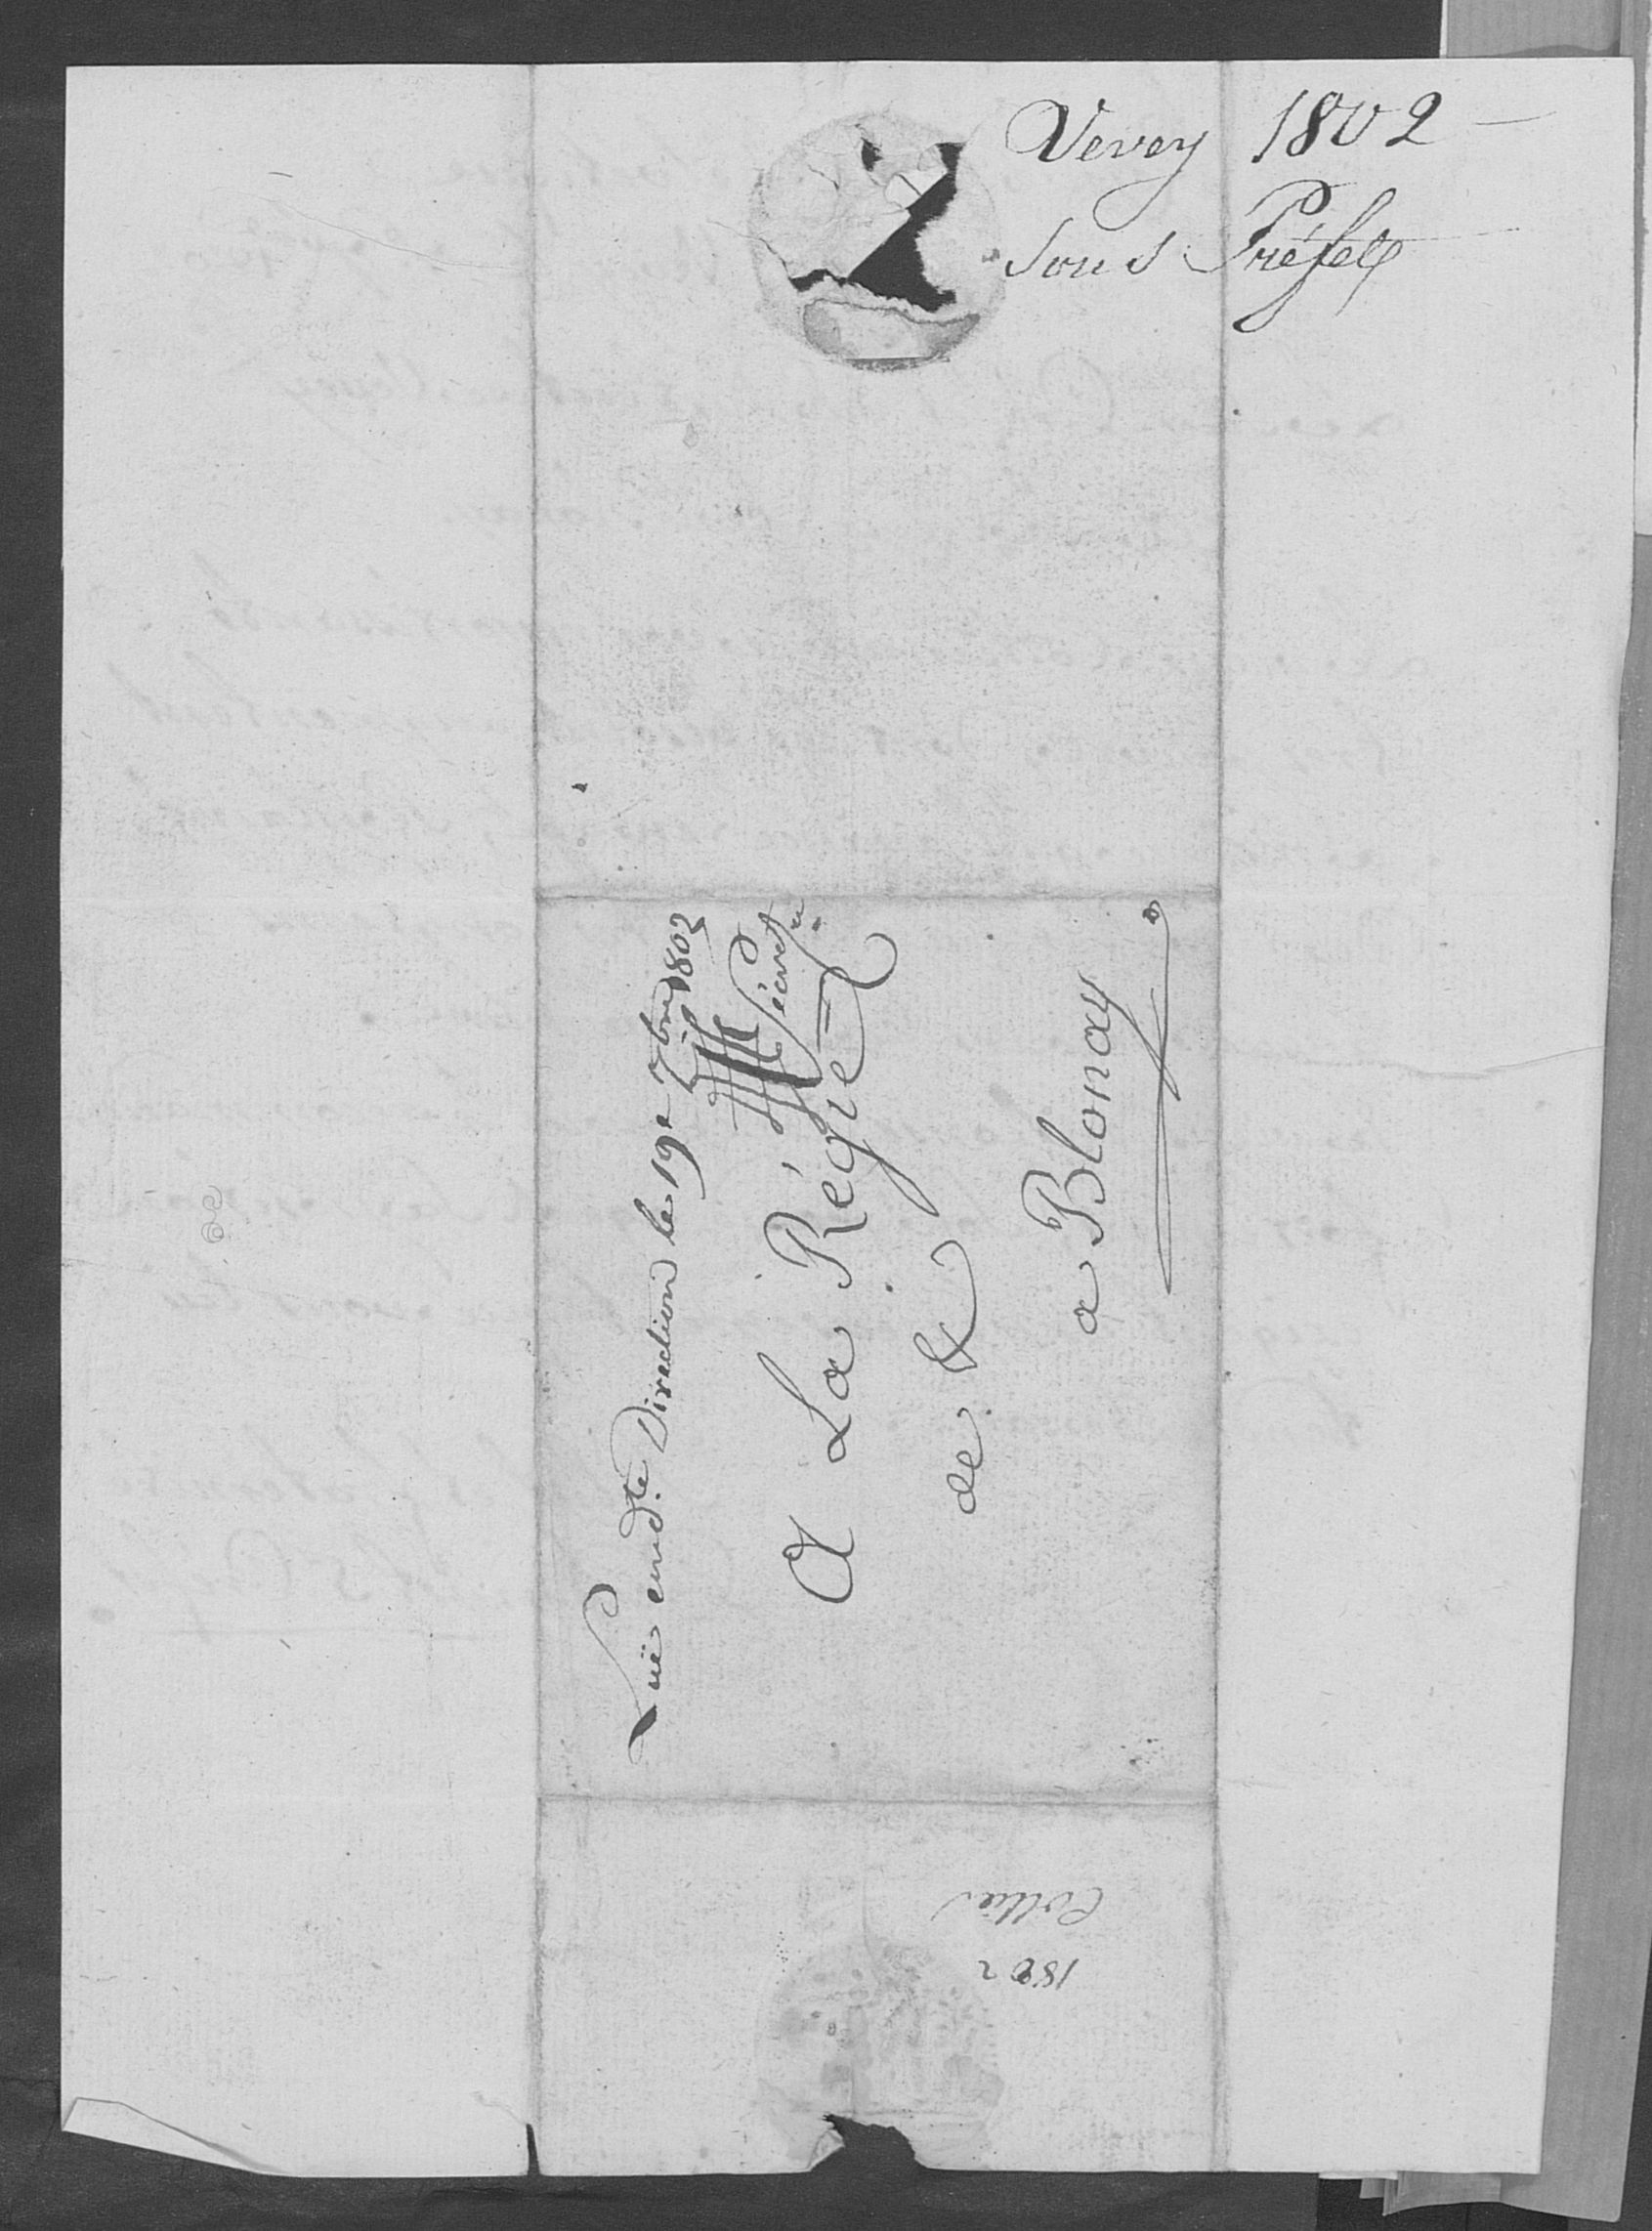 Vevey 1802
Sous Préfet
Luë en d.te Direction le 19e 7bre 1802
Sécret.re
A La Régie
de &
a Blonay
1802